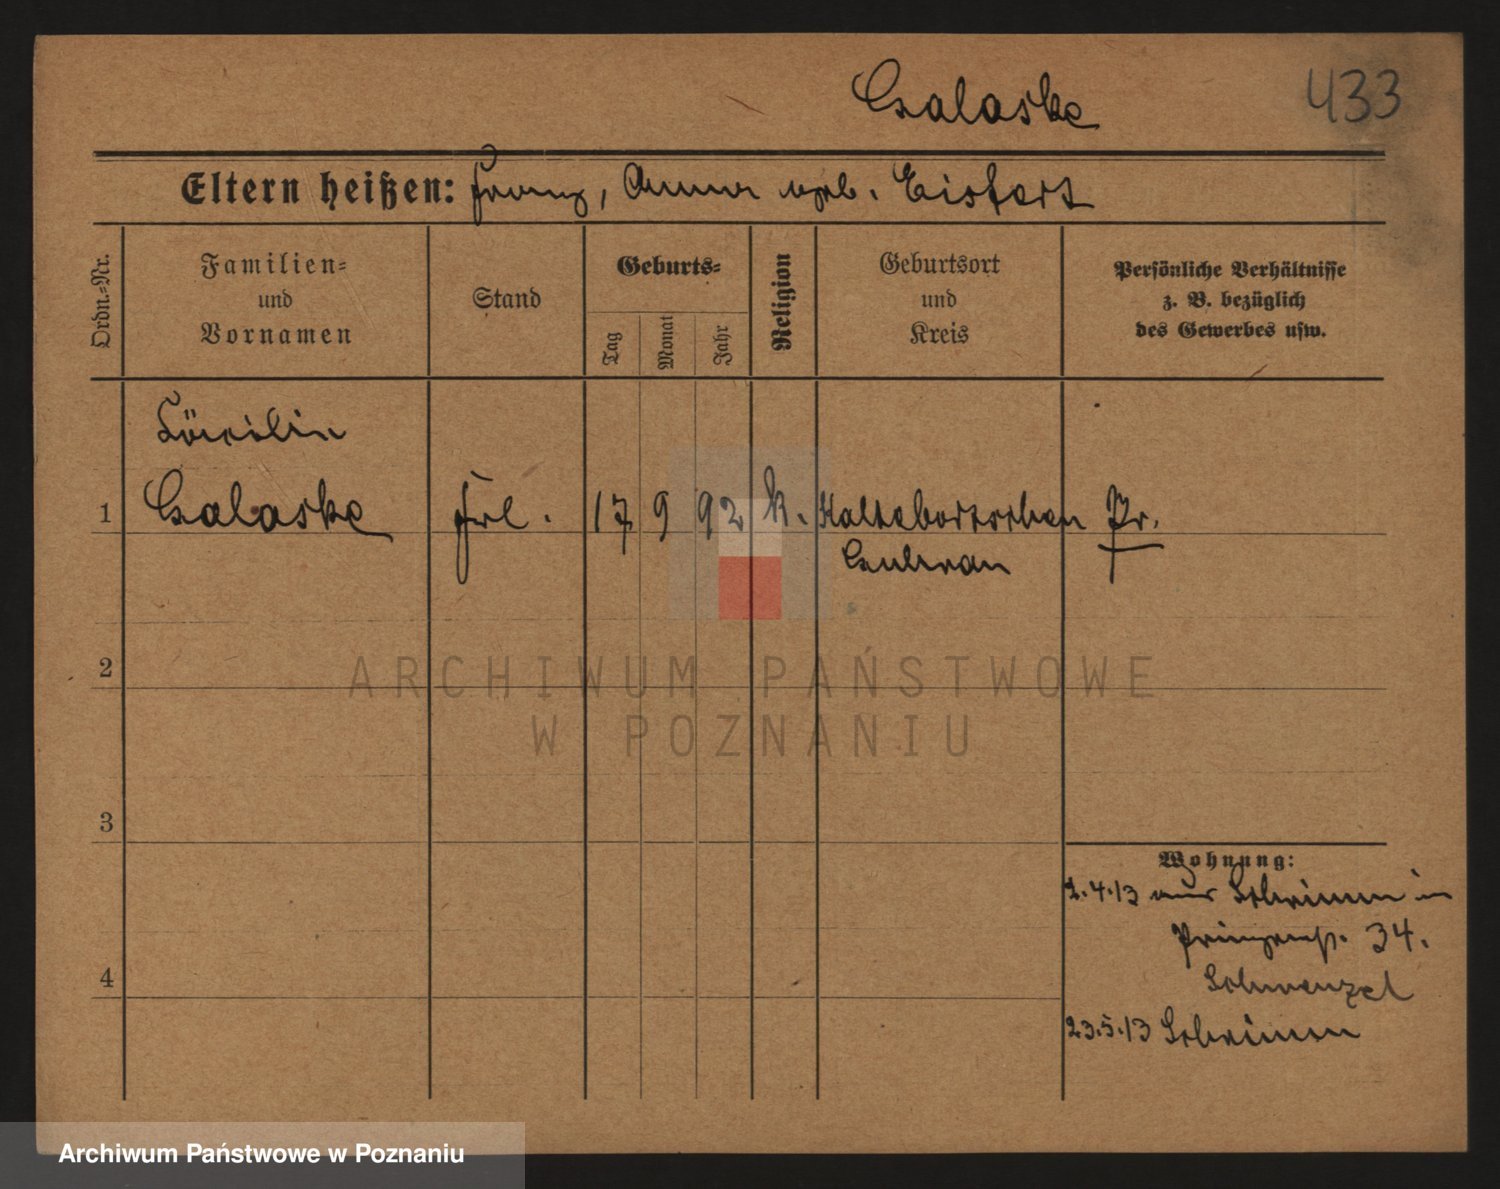 Galaske 433
Eltern heißen: Franz, Anna geb. Eisfert
Ordn.-Nr.
Familien-
und
Vornamen
Stand
Geburts-
Tag
Monat
Jahr
Religion
Geburtsort
und
Kreis
Persönliche Verhältnisse
z. B. bezüglich
des Gewerbes usw.
1 Galaske Frl. 17 9 92 k. Kaltebortschen Pr.
Guhrau
2
3
4
Wohnung:
2.4.13 aus Schrimm in
Prinzenstr. 34.
Schwenzel
23.5.13 Schrimm
ARCHIWUM PAŃSTWOWE
W POZNANIU
Archiwum Państwowe w Poznaniu